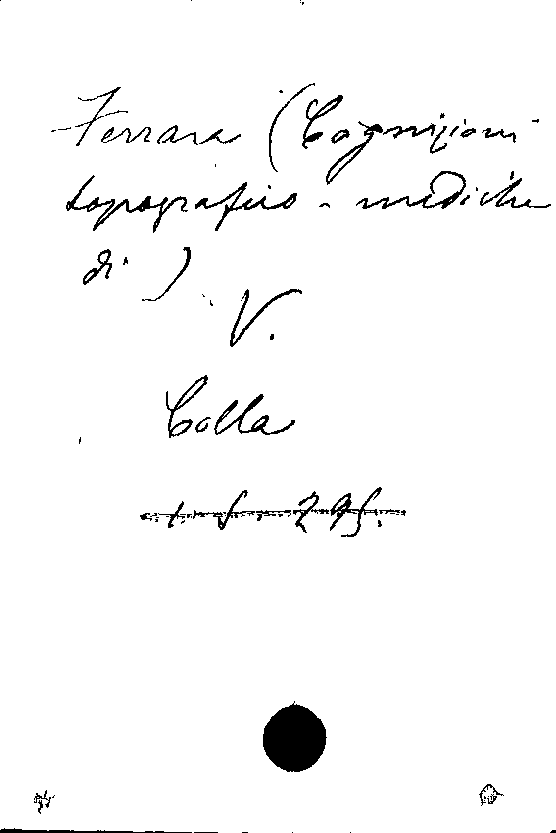 Ferrara (Cognizioni
topografico - mediche
di)
V.
Colla